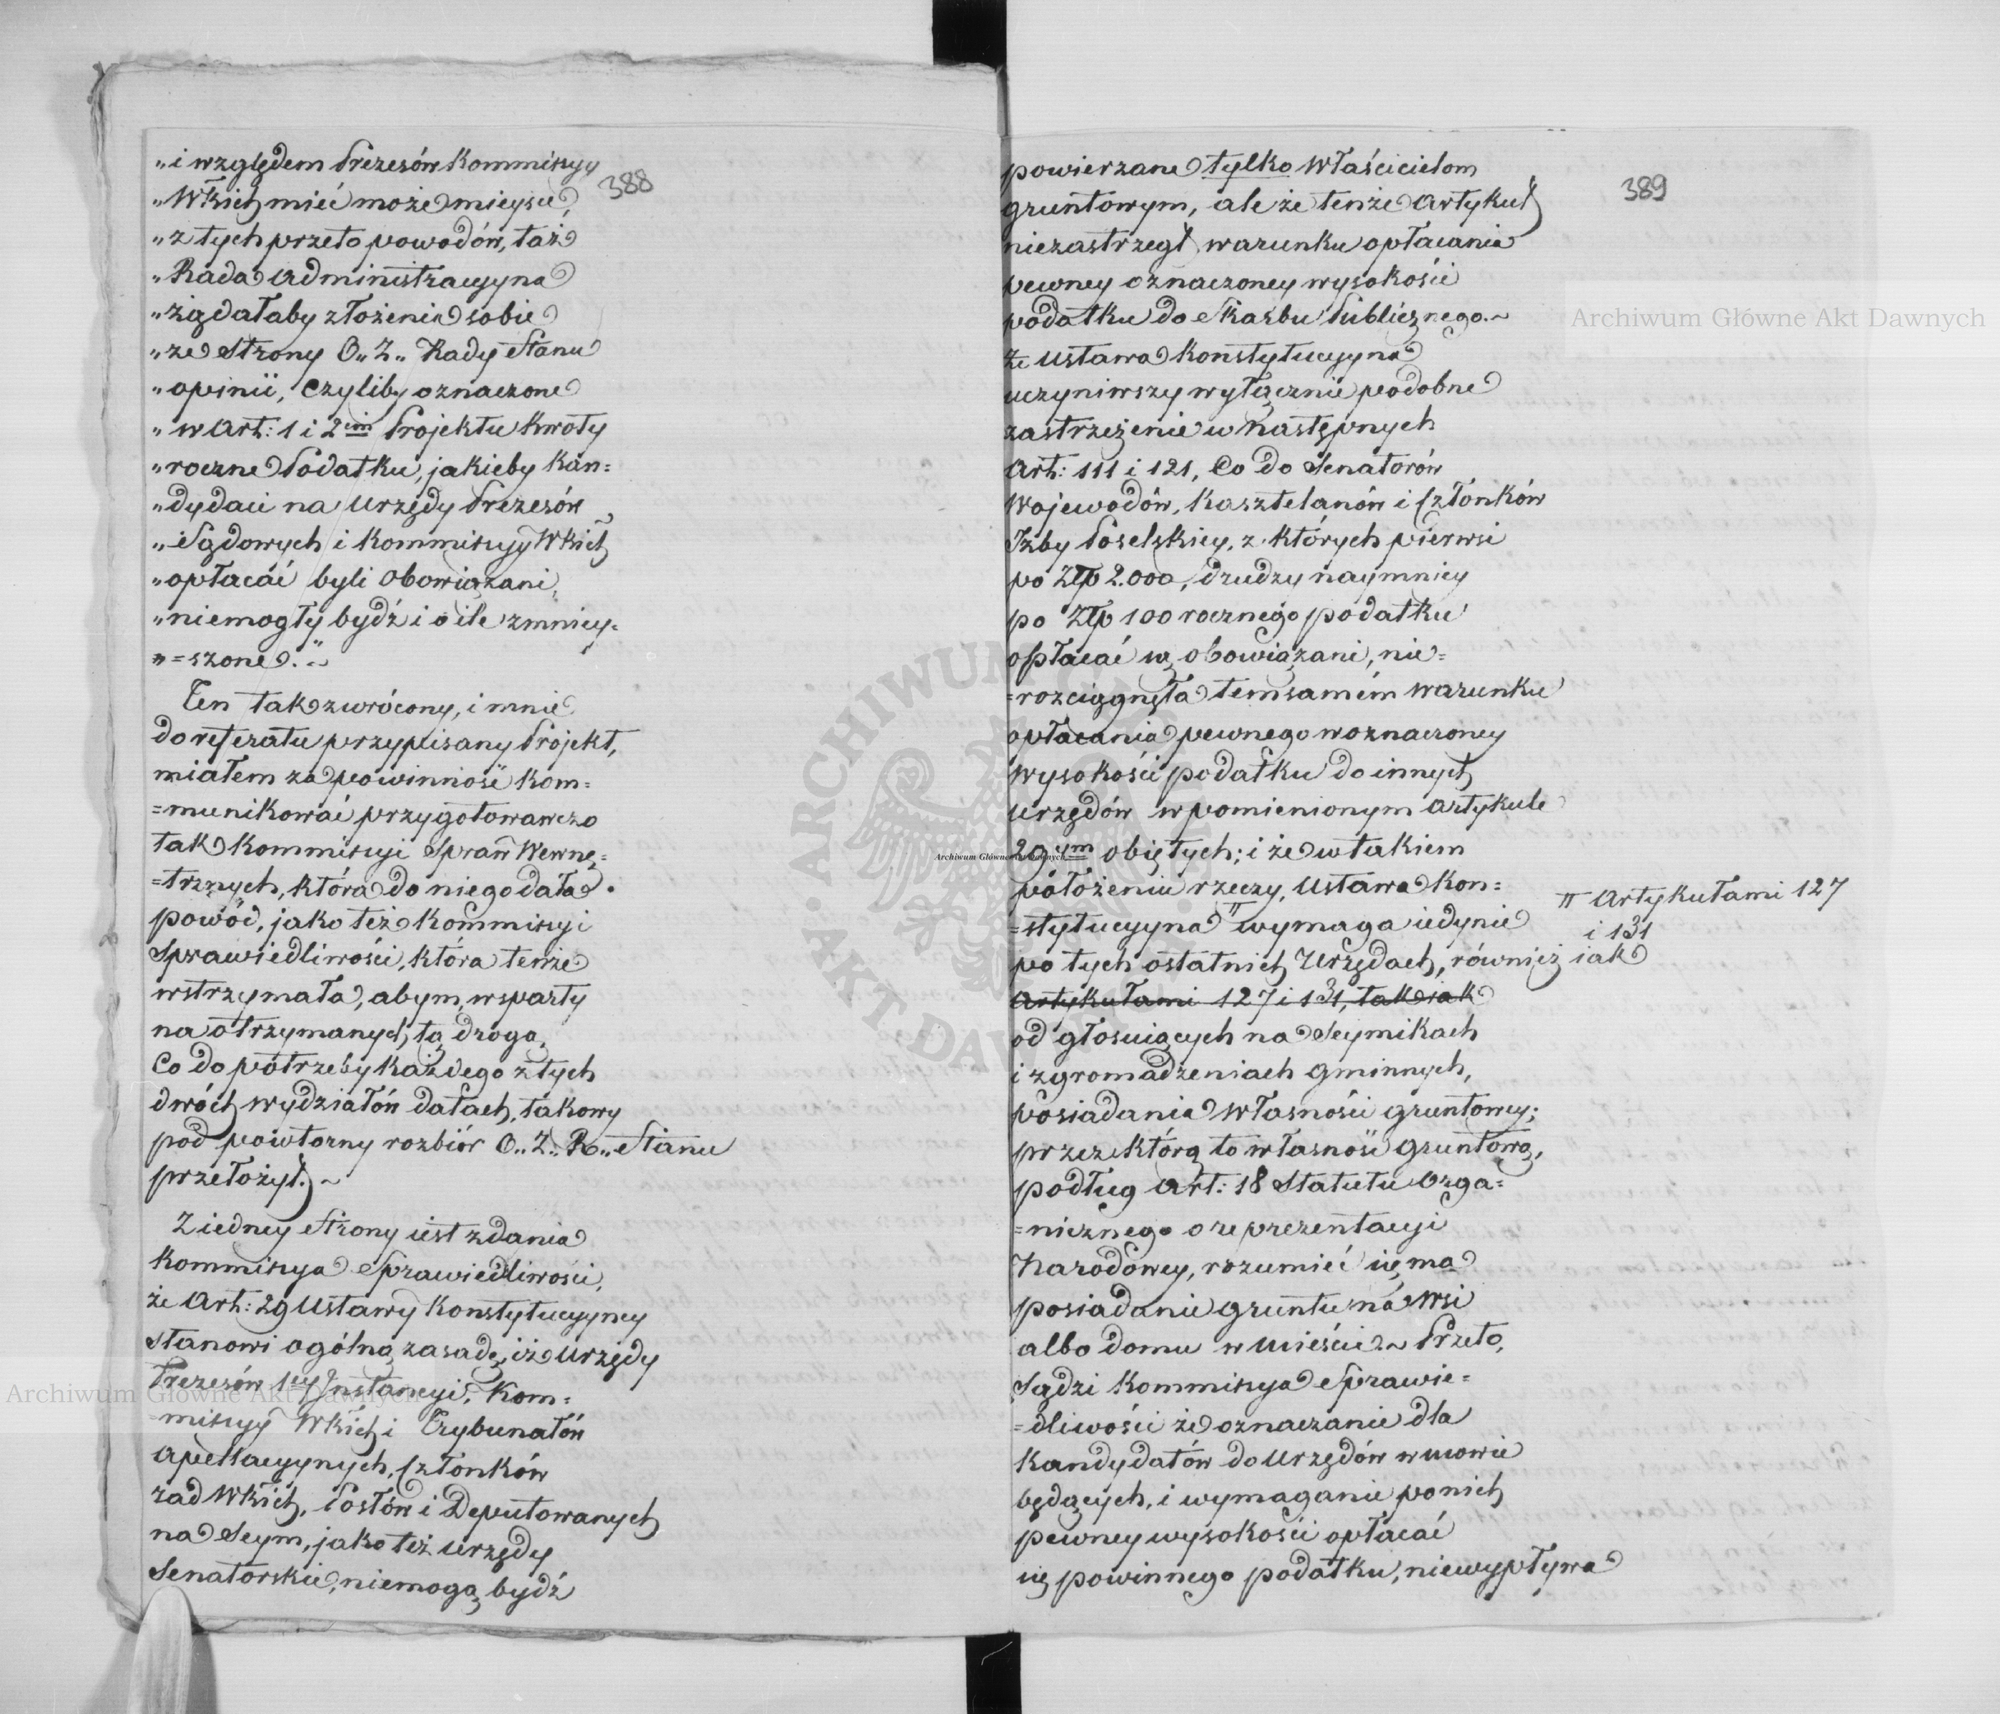 388
„i względem Prezesów Kommissyy
„Wkich mieć może mieysce,
„z tych przeto powodów, taż
„Rada Administracyyna
„żądałaby złożenia sobie
„ze Strony O.. Z.. Rady Stanu
„opinii, czyliby oznaczone
„w Art: 1 i 2im Projektu kwoty
„roczne Podatku, jakieby Kan=
„dydaci na Urzędy Prezesów
„Sądowych i Kommissyy Wkich
„opłacać byli obowiązani,
„niemogły bydź i o ile zmniey=
„=szone.„~
Ten tak zwrócony, i mnie
do referatu przypisany Projekt,
miałem za powinność kom=
=munikować przygotowawczo
tak Kommissyi Spraw Wewnę=
=trznych, która do niego dała
powód, jako też Kommissyi
Sprawiedliwości, która tenże
wstrzymała, abym, wsparty
na otrzymanych tą drogą,
Co do potrzeby każdego z tych
dwóch wydziałów datach, takowy
pod powtorny rozbiór O.. Z.. R.. Stanu
przełożył.~
Z iedney Strony iest zdania
Kommissya Sprawiedliwości,
że Art: 29 Ustawy Konstytucyyney
stanowi ogólną zasadę, iż Urzędy
Prezesów 1ey Instancyi, Kom=
=missyy Wkich i Trybunałów
Apellacyynych, Członków
rad Wkich, Posłów i Deputowanych
na Seym, jako też urzędy
Senatorskie, niemogą bydź
389
powierzane tylko Właścicielom
gruntowym, ale że tenże Artykuł
niezastrzegł warunku opłacania
pewney oznaczoney wysokości
podatku do Skarbu Publicznego.~
Że Ustawa Konstytucyyna
uczyniwszy wyłącznie podobne
zastrzeżenie w Następnych
Art: 111 i 121, Co do Senatorów
Wojewodów, Kasztelanów i Członków
Izby Poselskiey, z których pierwsi
po Złp 2.000, drudzy naymniey
po Złp 100 rocznego podatku
opłacać są obowiązani, nie=
=rozciągnęła temsamém warunku
opłacania pewnego w oznaczoney
wysokości podatku do innych
urzędów wpomienionym Artykule
29ym obiętych; i że w takiem
położeniu rzeczy, Ustawa Kon=
=stytucyyna ╥ wymaga iedynie
╥ Artykułami 127
i 131
po tych ostatnich Urzędach, również iak
Artykułami 127 i 131, tak iak
od głosuiących na Seymikach
i zgromadzeniach Gminnych,
posiadania Własności gruntowey;
przez którą to własność gruntową,
podług Art: 18 Statutu Orga=
=nicznego o reprezentacyi
Narodowey, rozumieć się ma
posiadanie gruntu na Wsi
albo domu w Mieście~ Przeto,
Sądzi Kommissya Sprawie=
=dliwości że oznaczanie dla
Kandydatów do Urzędów w mowie
będących, i wymaganie po nich
pewney wysokości opłacać
się powinnego podatku, niewypływa
Archiwum Główne Akt Dawnych
Archiwum Główne Akt Dawnych
Archiwum Główne Akt Dawnych
ARCHIWUM GŁÓWNE AKT DAWNYCH